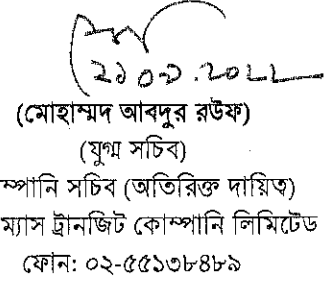 ২১.০৩.২০২২
(মোহাম্মদ আবদুর রউফ)
(যুগ্ম সচিব)
ম্পানি সচিব (অতিরিক্ত দায়িত্ব)
ম্যাস ট্রানজিট কোম্পানি লিমিটেড
ফোন: ০২-৫৫১৩৮৪৮৯